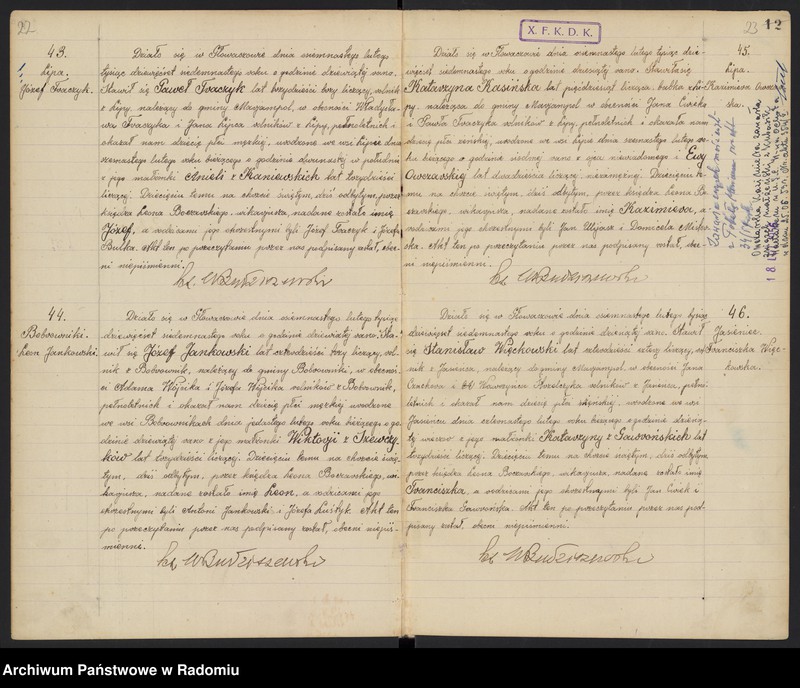 22
43.
Lipa.
Józef Tvaczyk.
Działo się w Głowaczowie dnia siemnastego lutego
tysiąc dziewięćset siedemnastego roku o godzinie dziewiątej rano.
Stawił się Paweł Tvaczyk lat trzydzieści trzy liczący, rolnik
z Lipy, należącej do gminy Maryampol, w obecności Władysła-
wa Tvaczyka i Jana Lipca rolników z Lipy, pełnoletnich i
okazał nam dziecię płci męskiej, urodzone we wsi Lipie dnia
szesnastego lutego roku bieżącego o godzinie dwunastej w południe
z jego małżonki Anieli z Kaniewskich lat trzydzieści
liczącej. Dziecięciu temu na chrzcie świętym, dziś odbytym, przez
księdza Leona Boczawskiego, wikaryusza, nadane zostało imię
Józef, a rodzicami jego chrzestnymi byli Józef Tvaczyk i Józefa
Bułka. Akt ten po przeczytaniu przez nas podpisany został, obec-
ni niepiśmienni.
44.
Bobrowniki.
Leon Jankowski.
Działo się w Głowaczowie dnia siemnastego lutego tysiąc
dziewięćset siedemnastego roku o godzinie dziewiątej rano. Sta-
wił się Józef Jankowski lat czterdzieści trzy liczący, rol-
nik z Bobrownik, należącej do gminy Bobrowniki, w obecnoś-
ci Adama Wójcika i Józefa Wójcika rolników z Bobrownik,
pełnoletnich i okazał nam dziecię płci męskiej urodzone
we wsi Bobrownikach dnia lutego roku bieżącego o go-
dzinie dziewiątej rano z jego małżonki Wiktoryi z Szewczy-
ków lat trzydzieści liczącej. Dziecięciu temu na chrzcie świę-
tym, dziś odbytym, przez księdza Leona Boczawskiego, wi-
karyusza, nadane zostało imię Leon, a rodzicami jego
chrzestnymi byli Antoni Jankowski i Józefa Luśtyk. Akt ten
po przeczytaniu przez nas podpisany został, obecni niepiś-
mienni.
X. F. K. D. K.
23 12
45.
Lipa.
Kazimiera
Działo się w Głowaczowie dnia siemnastego lutego tysiąc dzie-
więćset siedemnastego roku o godzinie dziesiątej rano. Stawiła się
Katarzyna Kasińska lat pięćdziesiąt licząca, babka z Li-
py, należącej do gminy Maryampol w obecności Jana Cwieka
i Pawła Tvaczyka rolników z Lipy, pełnoletnich i okazała nam
dziecię płci żeńskiej, urodzone we wsi Lipie dnia szesnastego lutego ro-
ku bieżącego o godzinie siódmej rano z ojca niewiadomego i Ewy
Owczarskiej lat dwadzieścia liczącej niezamężnej. Dziecięciu te-
mu na chrzcie świętym, dziś odbytym, przez księdza Leona Bo-
czawskiego, wikaryusza, nadane zostało imię Kazimiera, a
rodzicami jego chrzestnymi byli Jan Ujazd i Daniela
Akt ten po przeczytaniu przez nas podpisany został, obec-
ni niepiśmienni.
46.
Jasieniec.
Franciszka Więc-
kowska.
Działo się w Głowaczowie dnia siemnastego lutego tysiąc
dziewięćset siedemnastego roku o godzinie dziesiątej rano. Stawił
się Stanisław Więchowski lat czterdzieści cztery liczący, rol-
nik z Jasieńca, należącej do gminy Maryampol, w obecności Jana
i rolników z Jasieńca, pełno-
letnich i okazał nam dziecię płci żeńskiej, urodzone we wsi
Jasieńcu dnia czternastego lutego roku bieżącego o godzinie dziesią-
tej wieczór z jego małżonki Katarzyny z lat
trzydzieści liczącej. Dziecięciu temu na chrzcie świętym, dziś odbytym
przez księdza Leona Boczawskiego, wikaryusza, nadane zostało imię
Franciszka, a rodzicami jego chrzestnymi byli Jan Cwiek i
Franciszka Akt ten po przeczytaniu przez nas pod-
pisany został, obecni niepiśmienni.
Archiwum Państwowe w Radomiu